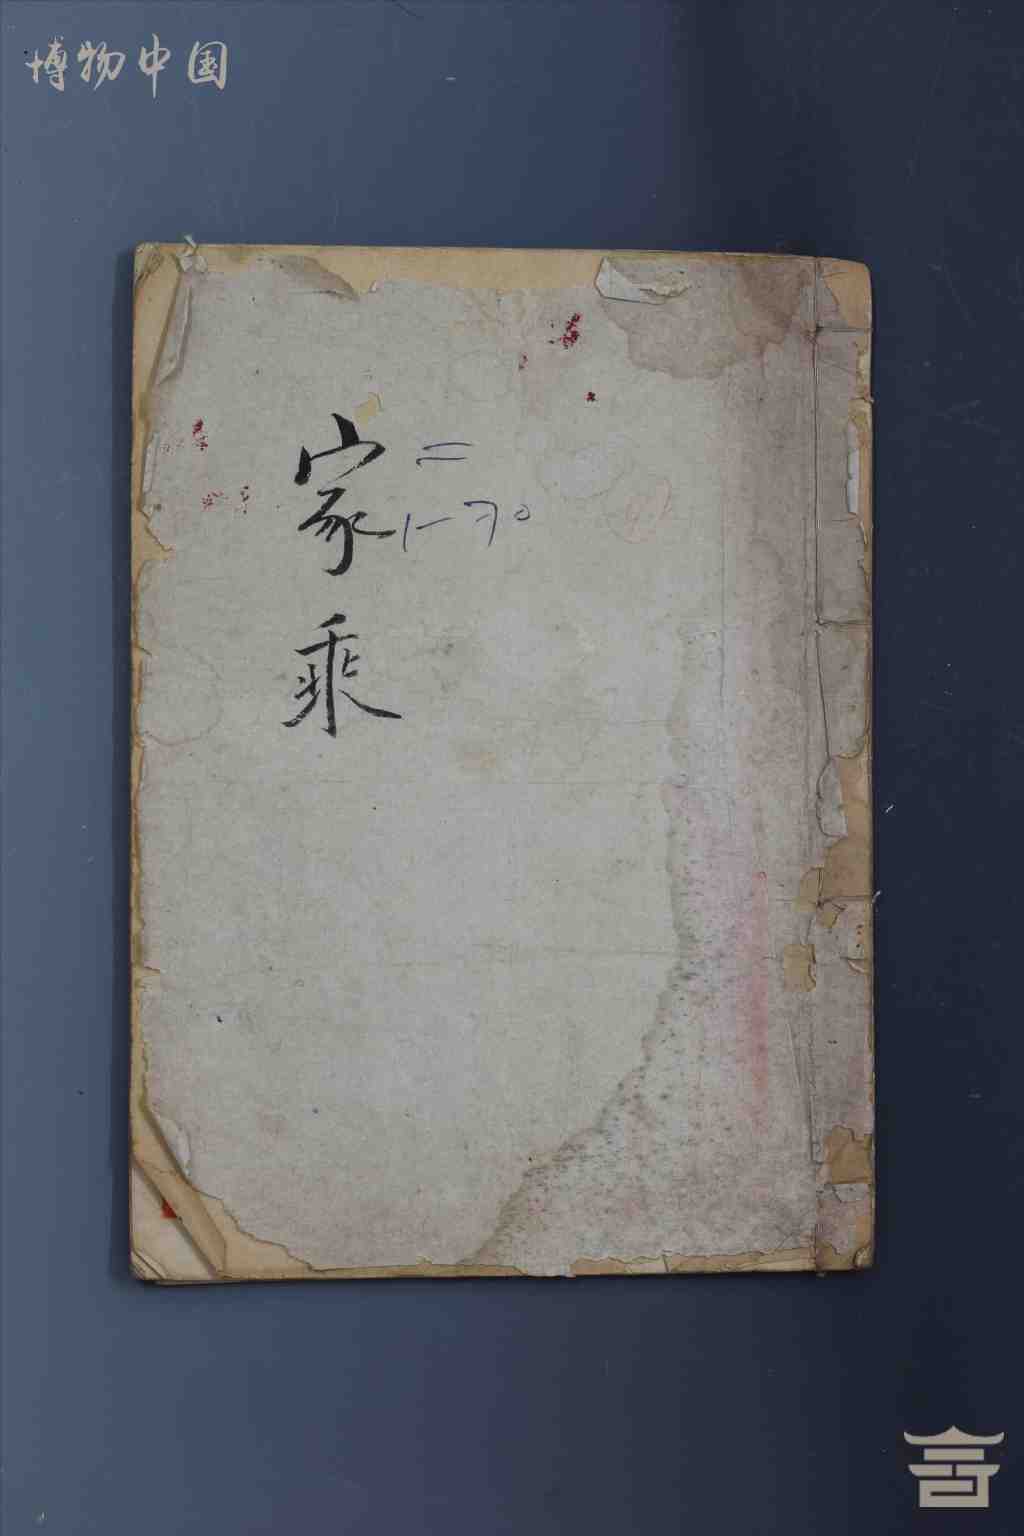 博物中国
家乘
二
1-70